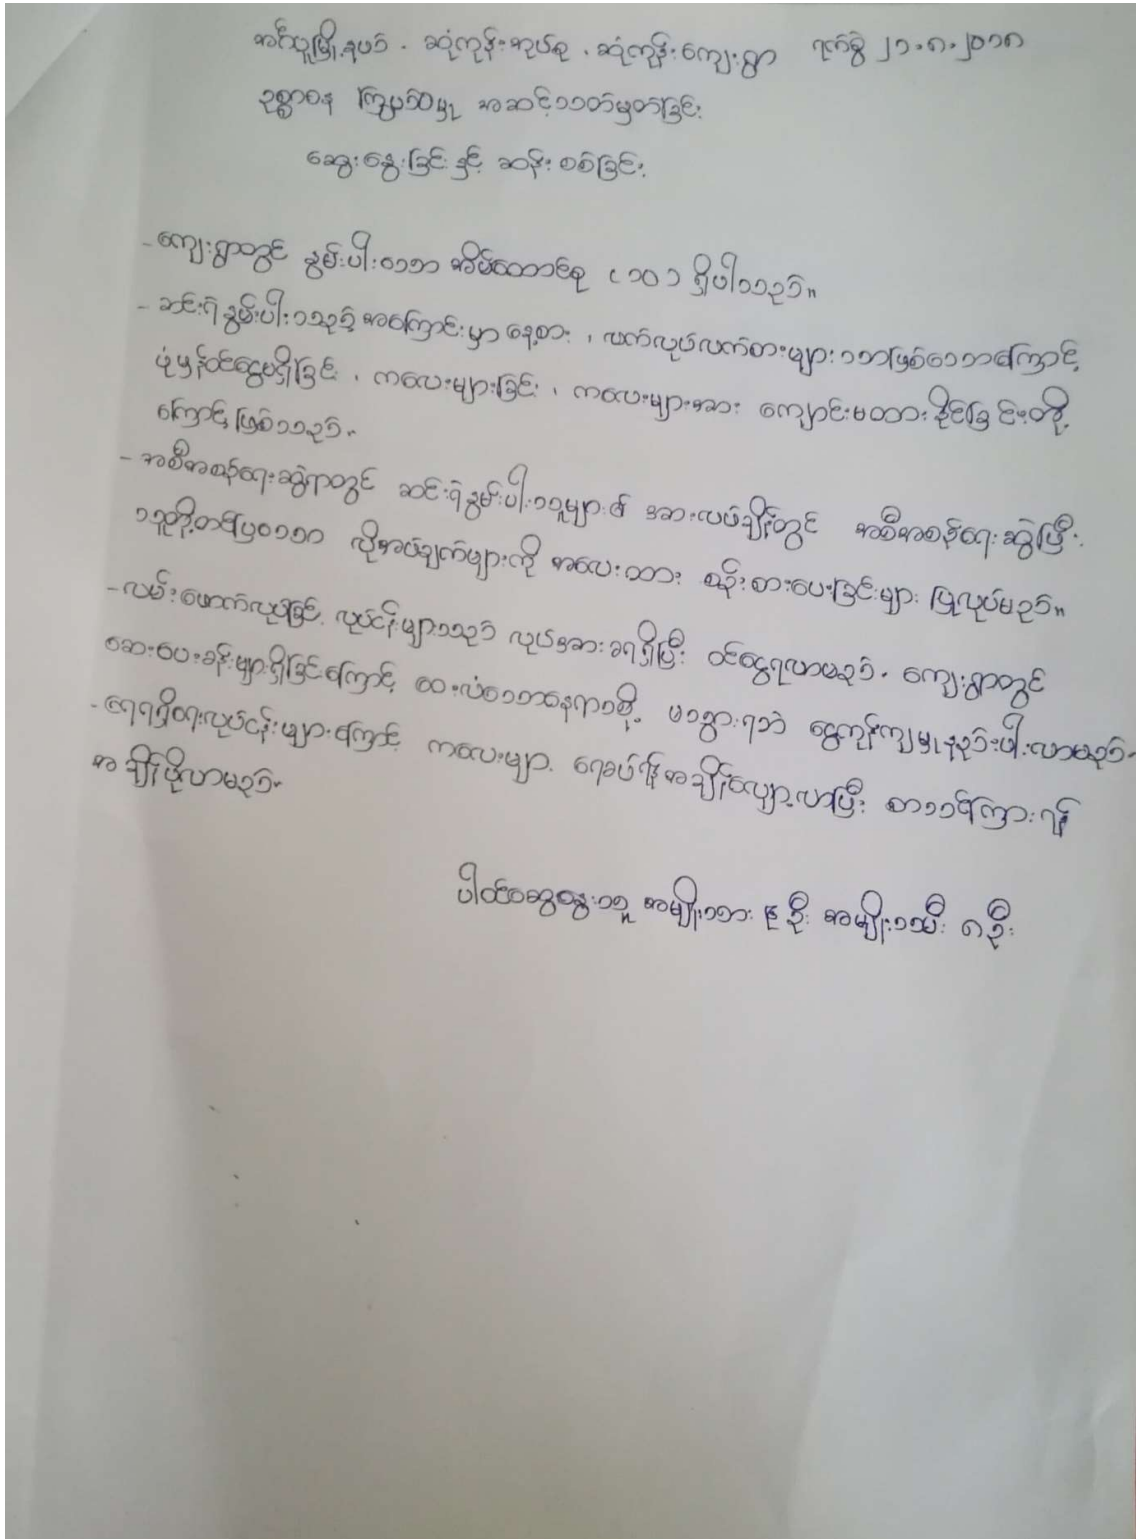 အင်္ဂပူမြို့နယ်၊ ဆုံကုန်းအုပ်စု၊ ဆုံကုန်းကျေးရွာ ရက်စွဲ ၂၁.၈.၂၀၁၈
ဥစ္စာဓန ကြွယ်ဝမှု အဆင့်သတ်မှတ်ခြင်း
ဆွေးနွေးခြင်းနှင့် ဆန်းစစ်ခြင်း
- ကျေးရွာတွင် နွမ်းပါးသော အိမ်ထောင်စု (၁၀) ရှိပါသည်။
- ဆင်းရဲနွမ်းပါးသည့် အကြောင်းမှာ နေ့စား၊ လက်လုပ်လက်စားများသာဖြစ်သောကြောင့်
ပုံမှန်ဝင်ငွေမရှိခြင်း၊ ကလေးများခြင်း၊ ကလေးများအား ကျောင်းမထားနိုင်ခြင်းတို့
ကြောင့်ဖြစ်သည်။
- အစီအစဉ်ရေးဆွဲရာတွင် ဆင်းရဲနွမ်းပါးသူများ၏ အားလပ်ချိန်တွင် အစီအစဉ်ရေးဆွဲပြီး
သူတို့တင်ပြသော လိုအပ်ချက်များကို အလေးထား စဉ်းစားပေးခြင်းများ ပြုလုပ်မည်။
- လမ်းဖောက်လုပ်ခြင်း လုပ်ငန်းများသည် လုပ်အားခရရှိပြီး ဝင်ငွေရလာမည်။ ကျေးရွာတွင်
ဆေးပေးခန်းများရှိခြင်းကြောင့် ဝေးလံသောနေရာသို့ မသွားရဘဲ ငွေကုန်ကျမှုနည်းပါးလာမည်။
- ရေရရှိရေးလုပ်ငန်းများကြောင့် ကလေးများ ရေခပ်ရန်အချိန်လျော့လာပြီး စာသင်ကြားရန်
အချိန်ပိုလာမည်။
ပါဝင်ဆွေးနွေးသူ အမျိုးသား ၄ ဦး အမျိုးသမီး ၈ ဦး